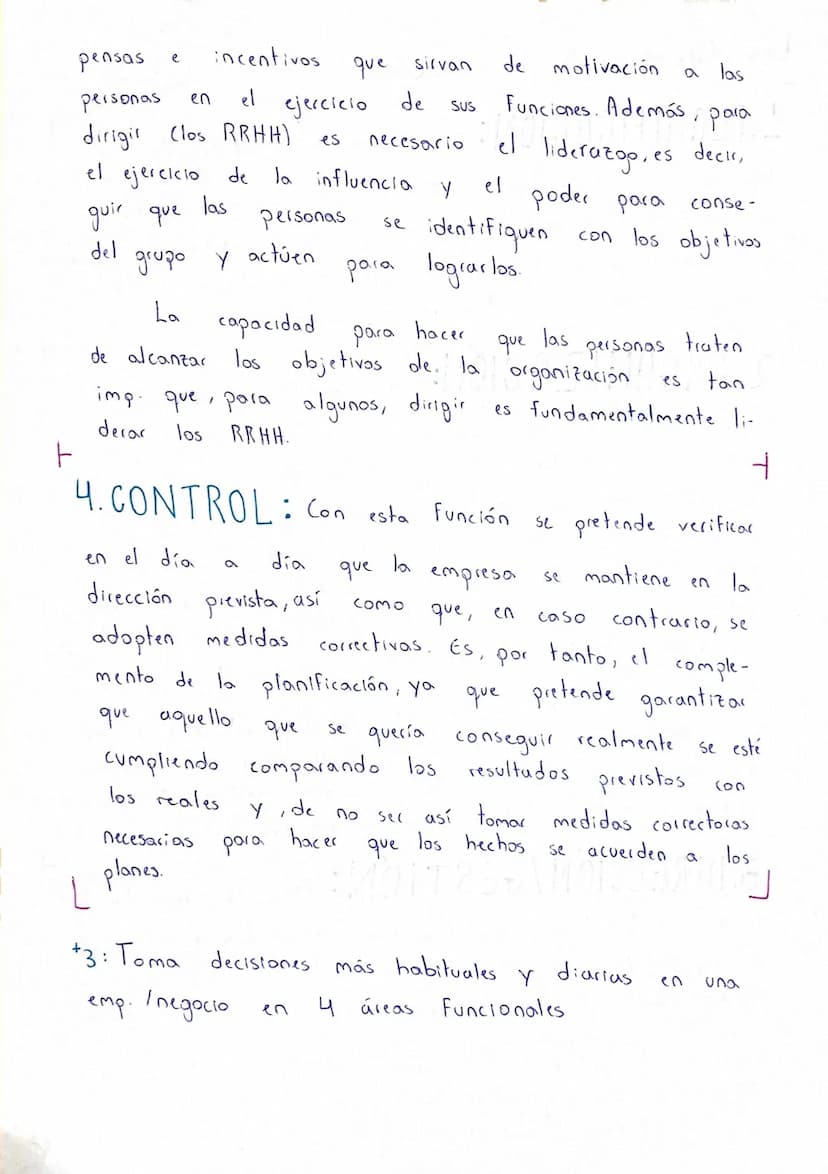 pensas e incentivos que sirvan de motivación a las
personas en el ejercicio de sus funciones. Además, para
dirigir (los RRHH) es necesario el liderazgo, es decir,
el ejercicio de la influencia y el poder para conse-
guir que las personas se identifiquen con los objetivos
del grupo y actúen para lograrlos.
La capacidad para hacer que las personas traten
de alcanzar los objetivos de la organización es tan
imp. que, para algunos, dirigir es fundamentalmente li-
derar los RRHH.
4. CONTROL: Con esta función se pretende verificar
en el día a día que la empresa se mantiene en la
dirección prevista, así como que, en caso contrario, se
adopten medidas correctivas. Es, por tanto, el comple-
mento de la planificación, ya que pretende garantizar
que aquello que se quería conseguir realmente se esté
cumpliendo comparando los resultados previstos con
los reales y, de no ser así tomar medidas correctoras
necesarias para hacer que los hechos se acuerden a los
planes.
+3: Toma decisiones más habituales y diarias en una
emp. / negocio en 4 áreas funcionales